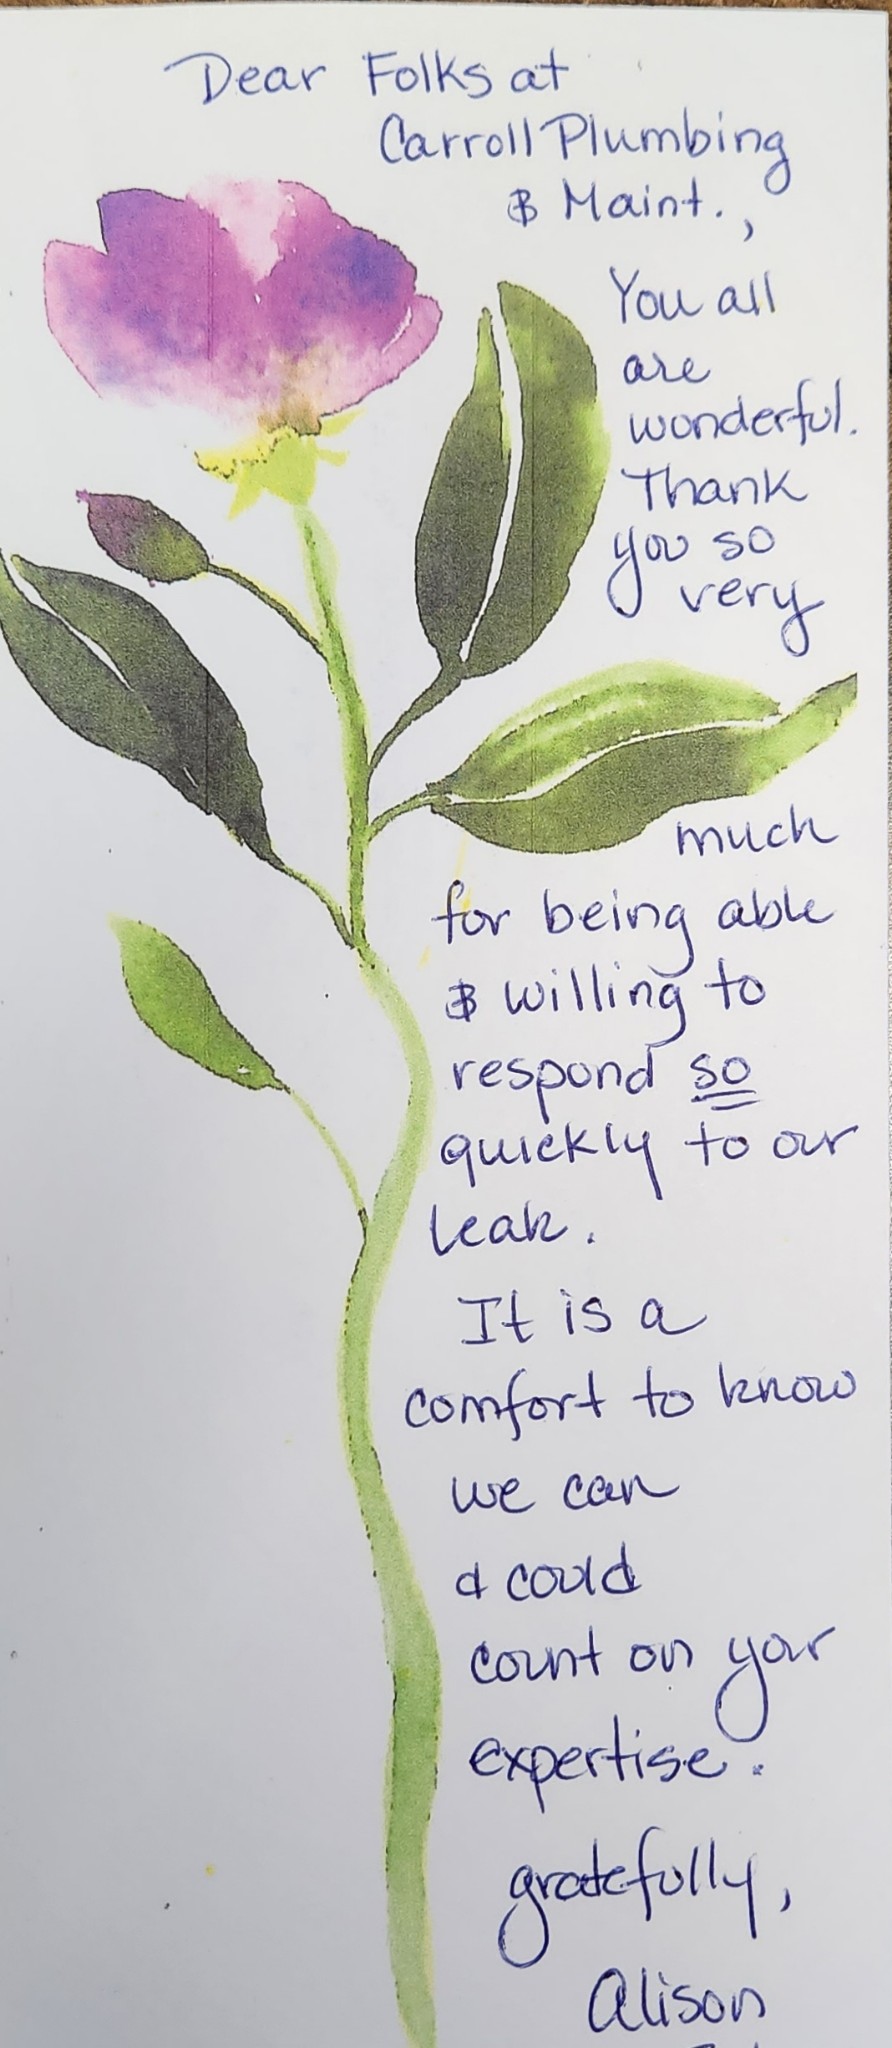 Dear Folks at
Carroll Plumbing
& Maint.,
You all
are
wonderful.
Thank
you so
very
much
for being able
& willing to
respond so
quickly to our
leak.
It is a
comfort to know
we can
& could
count on your
expertise.
gratefully,
Alison